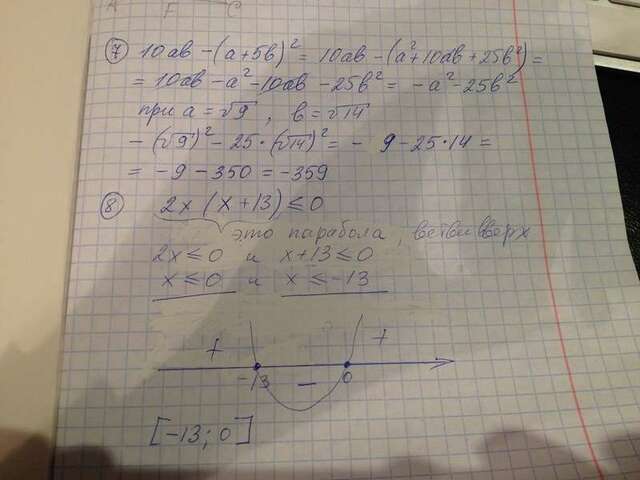 A F C
⑦ 10ав - (а+5в)² = 10ав - (а²+10ав+25в²) =
= 10ав - а² - 10ав - 25в² = - а² - 25в²
при а = √9 , в = √14
- (√9)² - 25 · (√14)² = - 9 - 25 · 14 =
= - 9 - 350 = -359
⑧ 2x (x + 13) ≤ 0
это парабола, ветви вверх
2x ≤ 0 и x+13 ≤ 0
x ≤ 0 и x ≤ -13
+ +
-13 - 0
[-13; 0]